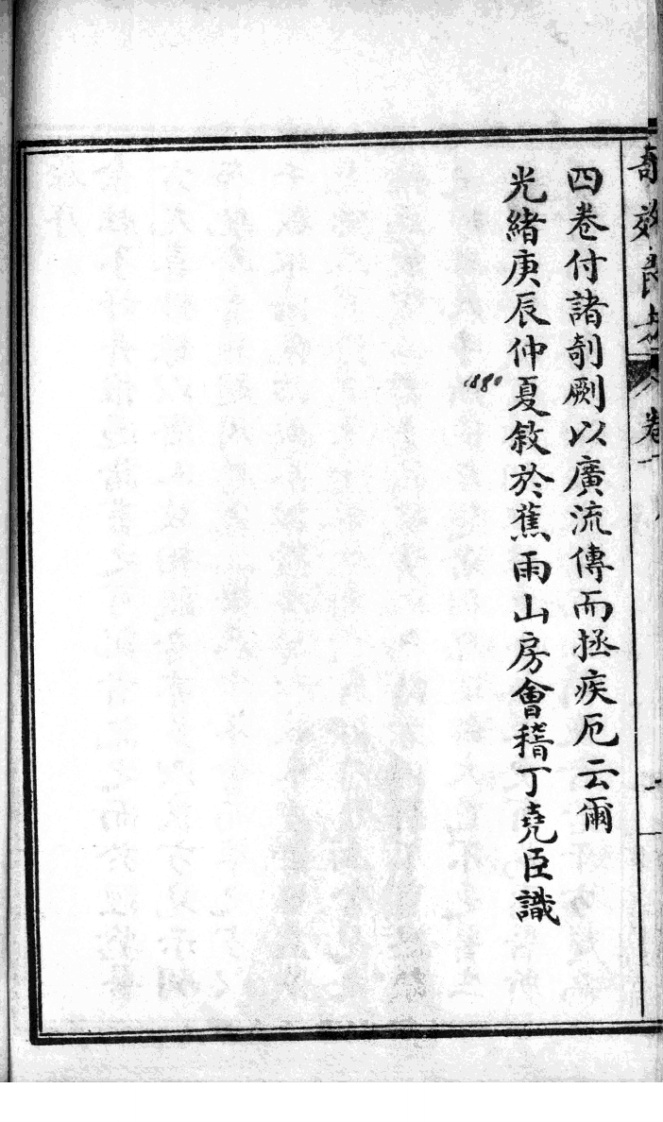 奇效良方 卷
四卷付諸剞劂以廣流傳而拯疾厄云爾
光緒庚辰仲夏敘於蕉雨山房會稽丁堯臣識
1880